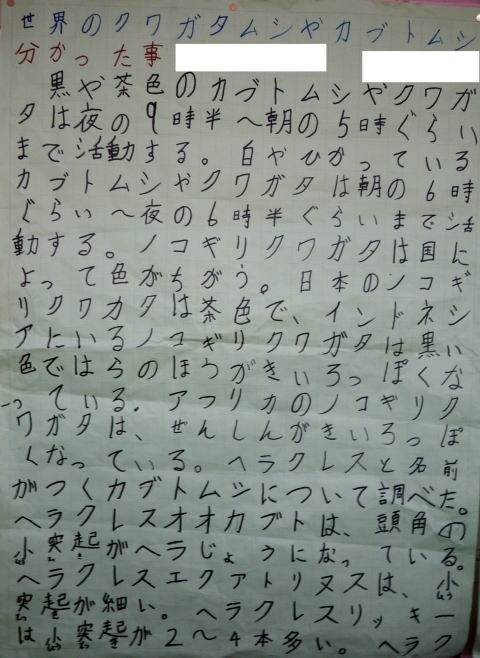 世界のクワガタムシやカブトムシ
分かった事
黒や茶色のカブトムシやクワガ
タは夜の9時半〜朝の5時ぐらい
まで活動する。白やひかっている
カブトムシやクワガタは朝の6時
ぐらい〜夜の6時半ぐらいまで活
動する。ノコギリクワガタは国に
よって色がちがう。日本のノコギ
リクワカタは茶色で、インドネシ
アにいるノコギリクワガタは黒い
色ではらのほうがきいろっぽくな
っている。アフリカのノコギリク
ワガタは、ぜんしんがきいろっぽ
くなっている。ヘラクレスと名前
がつくカブトムシについて調べた。
ヘラクレスオオカブトは、頭角の
小突起がヘラじょうになっている。
ヘラクレスエクアトリヌスは、小
突起が細い。ヘラクレスリッキー
は小突起が2〜4本多い。ヘラク